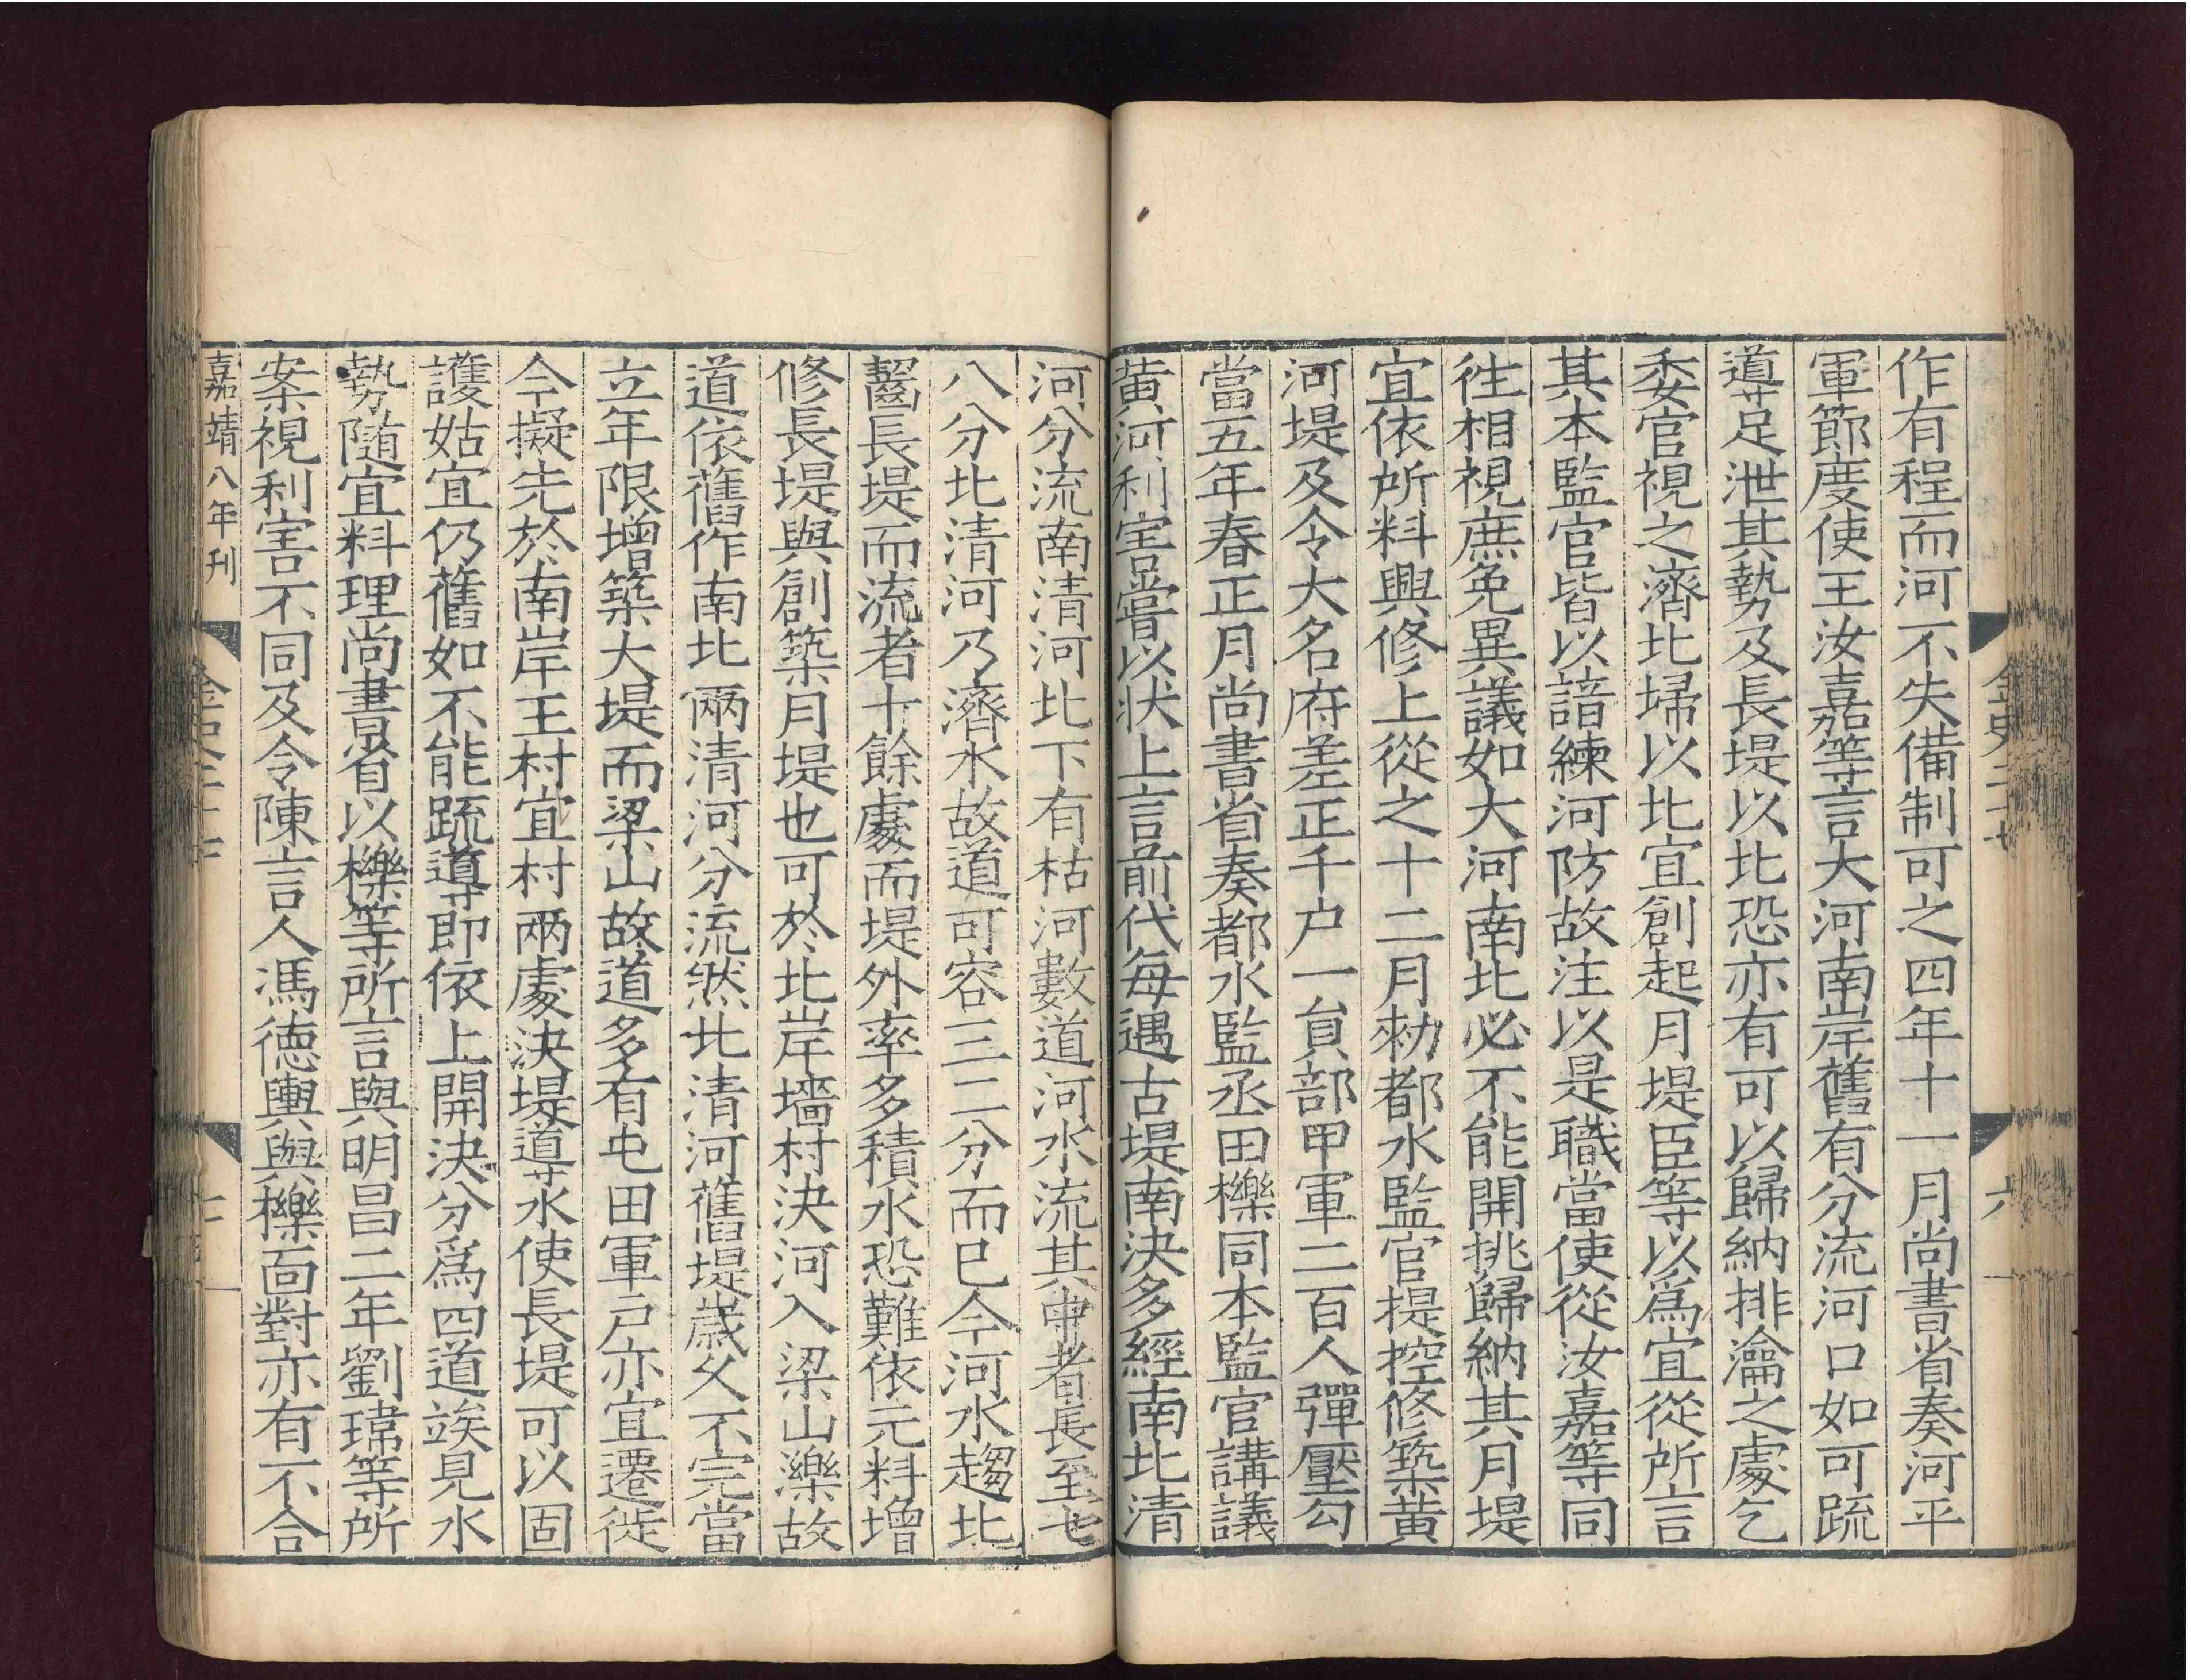 作有程而河不失備制可之四年十一月尚書省奏河平
軍節度使王汝嘉等言大河南岸舊有分流河口如可疏
導足泄其勢及長堤以北恐亦有可以歸納排瀹之處乞
委官視之濟北埽以北宜創起月堤臣等以爲宜從所言
其本監官皆以諳練河防故注以是職當使從汝嘉等同
徃相視庶免異議如大河南北必不能開挑歸納其月堤
宜依所料興修上從之十二月勑都水監官提控修築黃
河堤及令大名府差正千户一貟部甲軍二百人彈壓勾
當五年春正月尚書省奏都水監丞田櫟同本監官講議
黃河利害嘗以狀上言前代每遇古堤南決多經南北清
河分流南清河北下有枯河數道河水流其中者長至七
八分北清河乃濟水故道可容三二分而巳今河水趨北
齧長堤而流者十餘處而堤外率多積水恐難依元料增
修長堤與創築月堤也可於北岸墻村決河入梁山濼故
道依舊作南北兩清河分流然北清河舊堤歲久不完當
立年限增築大堤而梁山故道多有屯田軍户亦宜遷徙
今擬先於南岸王村宜村兩處決堤導水使長堤可以固
護姑宜仍舊如不能疏導即依上開決分爲四道竢見水
勢隨宜料理尚書省以櫟等所言與明昌二年劉瑋等所
案視利害不同及令陳言人馮德輿與櫟面對亦有不合
嘉靖八年刊
金史二十七
六